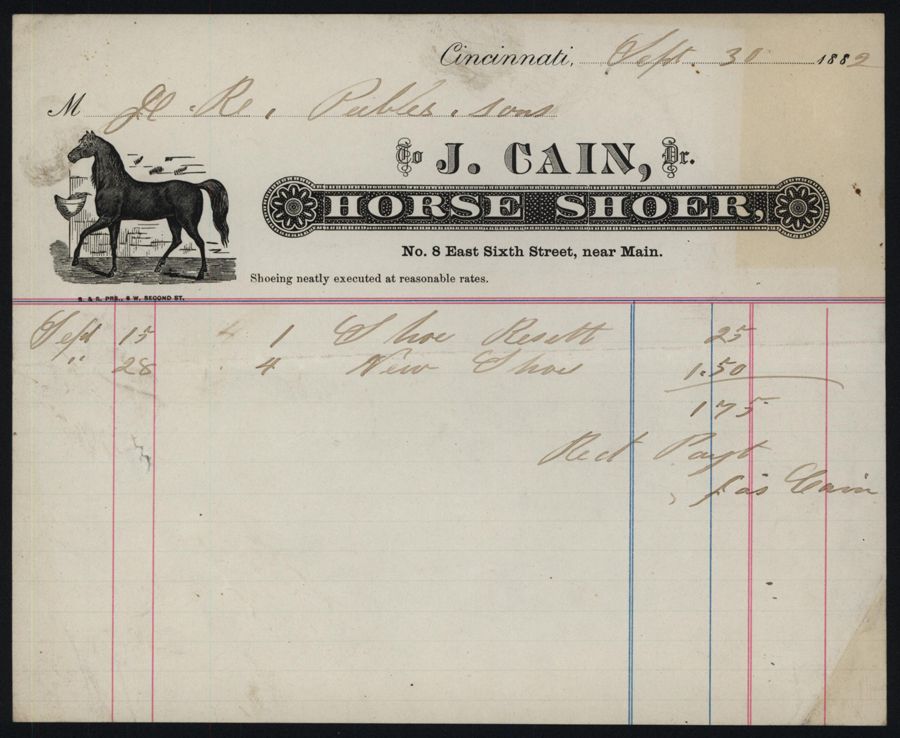 Cincinnati, Sept. 30 1882
M Peebles. sons
To J. CAIN, Dr.
HORSE SHOER,
No. 8 East Sixth Street, near Main.
Shoeing neatly executed at reasonable rates.
S. & R. PRS., 6 W. SECOND ST.
Sept 15 1 Shoe Resett 25
" 28 4 New Shoe 1.50
175
Recd Payt
Jas Cain